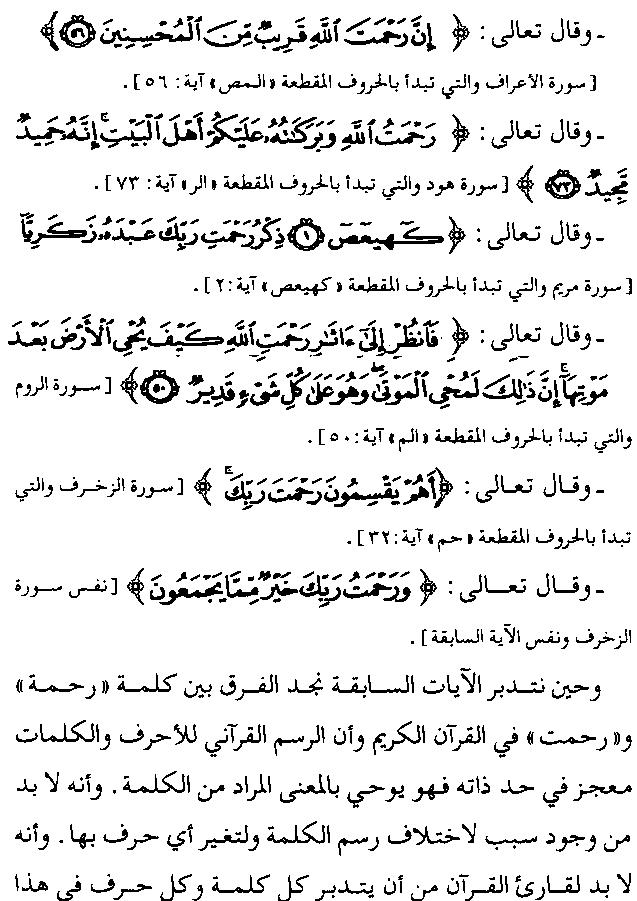 ـ وقال تعالى: ﴿ إِنَّ رَحْمَتَ اللَّهِ قَرِيبٌ مِّنَ الْمُحْسِنِينَ ٥٦ ﴾
[سورة الأعراف والتي تبدأ بالحروف المقطعة «المص» آية: ٥٦].
ـ وقال تعالى: ﴿ رَحْمَتُ اللَّهِ وَبَرَكَاتُهُ عَلَيْكُمْ أَهْلَ الْبَيْتِ إِنَّهُ حَمِيدٌ
مَّجِيدٌ ٧٣ ﴾ [سورة هود والتي تبدأ بالحروف المقطعة «الر» آية: ٧٣].
ـ وقال تعالى: ﴿ كهيعص ١ ذِكْرُ رَحْمَتِ رَبِّكَ عَبْدَهُ زَكَرِيَّا
[سورة مريم والتي تبدأ بالحروف المقطعة «كهيعص» آية: ٢].
ـ وقال تعالى: ﴿ فَانظُرْ إِلَىٰ ءَاثَارِ رَحْمَتِ اللَّهِ كَيْفَ يُحْيِ الْأَرْضَ بَعْدَ
مَوْتِهَا إِنَّ ذَٰلِكَ لَمُحْيِ الْمَوْتَىٰ وَهُوَ عَلَىٰ كُلِّ شَيْءٍ قَدِيرٌ ٥٠ ﴾ [سورة الروم
والتي تبدأ بالحروف المقطعة «الم» آية: ٥٠].
ـ وقال تعالى: ﴿ أَهُمْ يَقْسِمُونَ رَحْمَتَ رَبِّكَ ﴾ [سورة الزخرف والتي
تبدأ بالحروف المقطعة «حم» آية: ٣٢].
ـ وقال تعالى: ﴿ وَرَحْمَتُ رَبِّكَ خَيْرٌ مِّمَّا يَجْمَعُونَ ﴾ [نفس سورة
الزخرف ونفس الآية السابقة].
وحين نتدبر الآيات السابقة نجد الفرق بين كلمة «رحمة»
و«رحمت» في القرآن الكريم وأن الرسم القرآني للأحرف والكلمات
معجز في حد ذاته فهو يوحي بالمعنى المراد من الكلمة. وأنه لا بد
من وجود سبب لاختلاف رسم الكلمة ولتغير أي حرف بها. وأنه
لا بد لقارئ القرآن من أن يتدبر كل كلمة وكل حرف في هذا